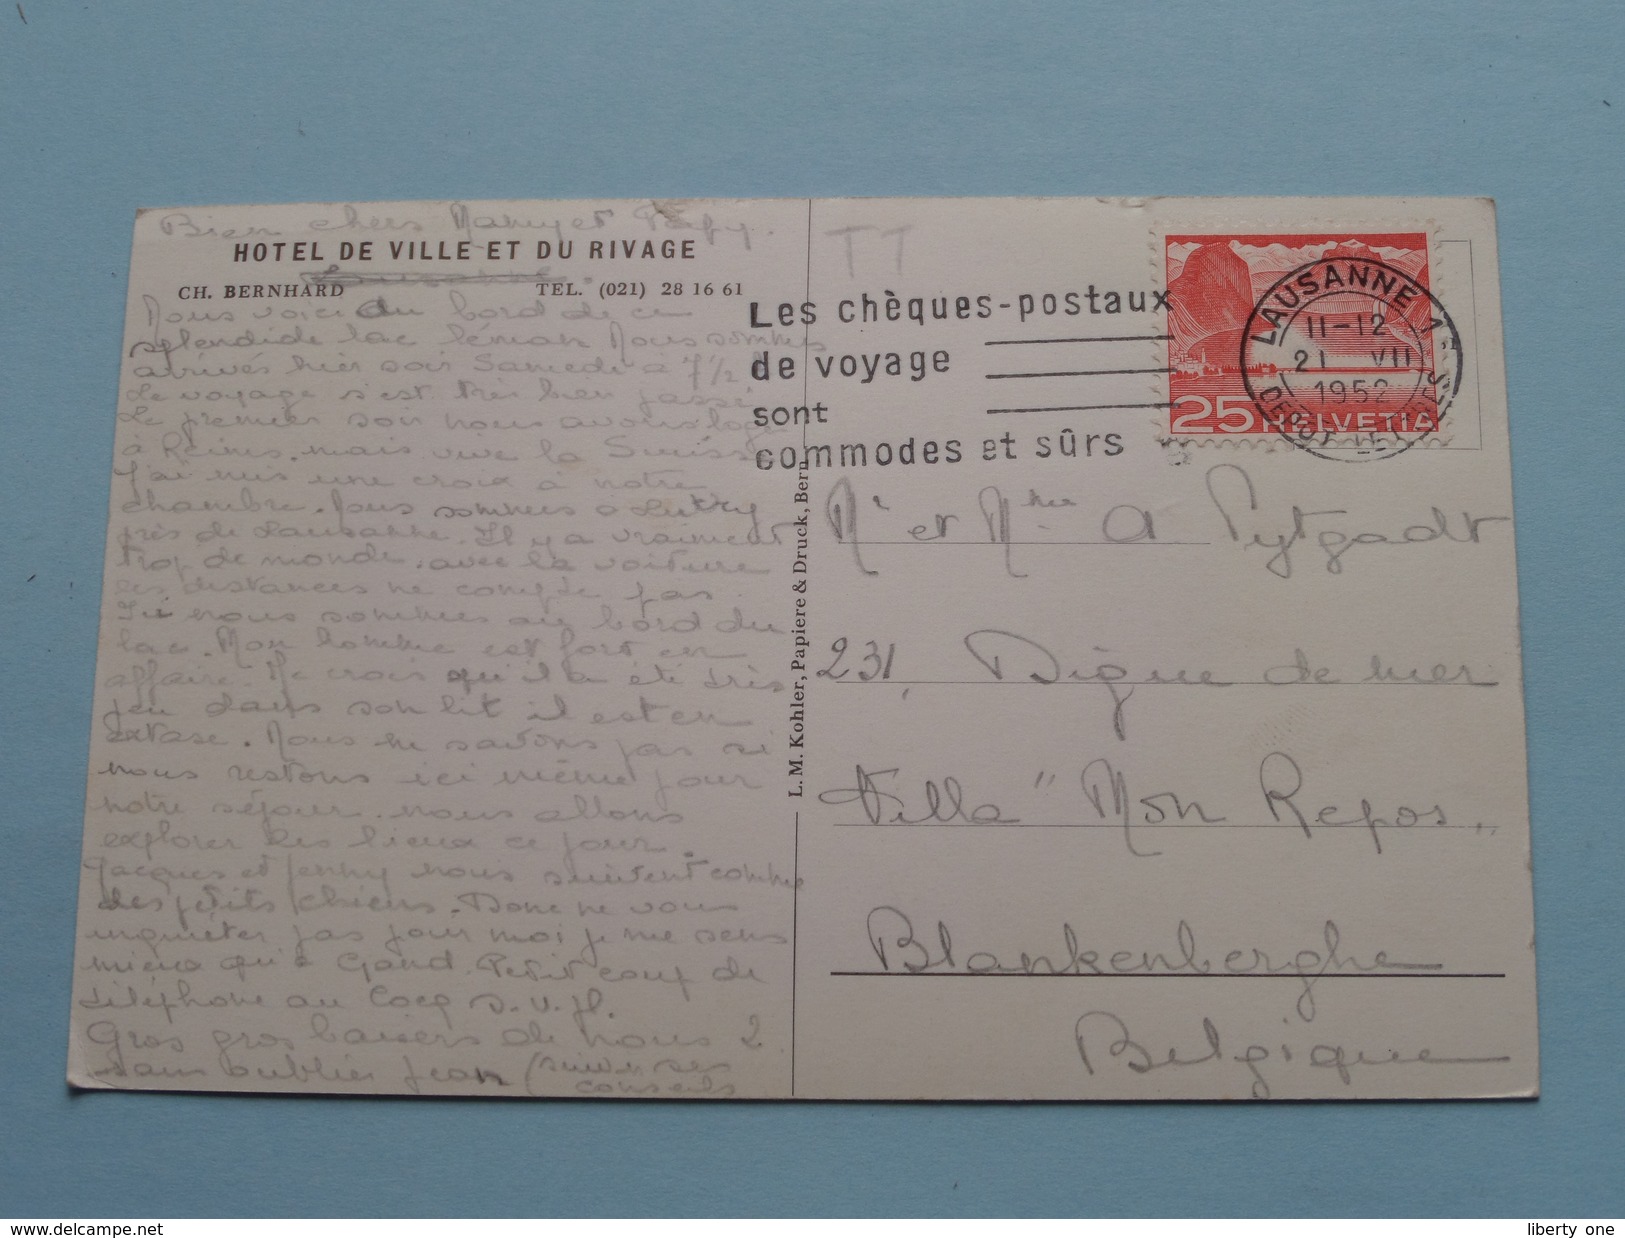 Bien chers Mamy et Papy.
HOTEL DE VILLE ET DU RIVAGE
CH. BERNHARD TEL. (021) 28 16 61
Nous voici au bord de ce
splendide lac léman Nous sommes
arrivés hier soir Samedi à 7½
Le voyage s'est très bien passé
Le premier soir nous avons logé
à Reims. mais vive la Suisse
J'ai mis une croix à notre
chambre. Nous sommes à Lutry
près de Lausanne. Il y a vraiment
trop de monde. avec la voiture
les distances ne compte pas
Ici nous sommes au bord du
lac. Mon homme est fort en
affaire. Je crois qu'il a été très
peu dans son lit il est en
extase. Nous ne savons pas si
nous restons ici même pour
notre séjour. nous allons
explorer les lieux ce jour.
Jacques et Jenny nous suivent comme
des petits chiens. Donc ne vous
inquiéter pas pour moi je me sens
mieux qu'à Gand. Petit coup de
téléphone au Cocq s.v.pl.
Gros gros baisers de nous 2
sans oublier Jean (suivre ses
conseils
L. M. Kohler, Papiere & Druck, Bern
TT
Les chèques-postaux
de voyage
sont
commodes et sûrs
25 HELVETIA
LAUSANNE 1
11-12
21 VII
1952
Mr et Mme A Pytgadt
231, Digue de mer
Villa "Mon Repos"
Blankenberghe
Belgique
http://www.delcampe.net
liberty one